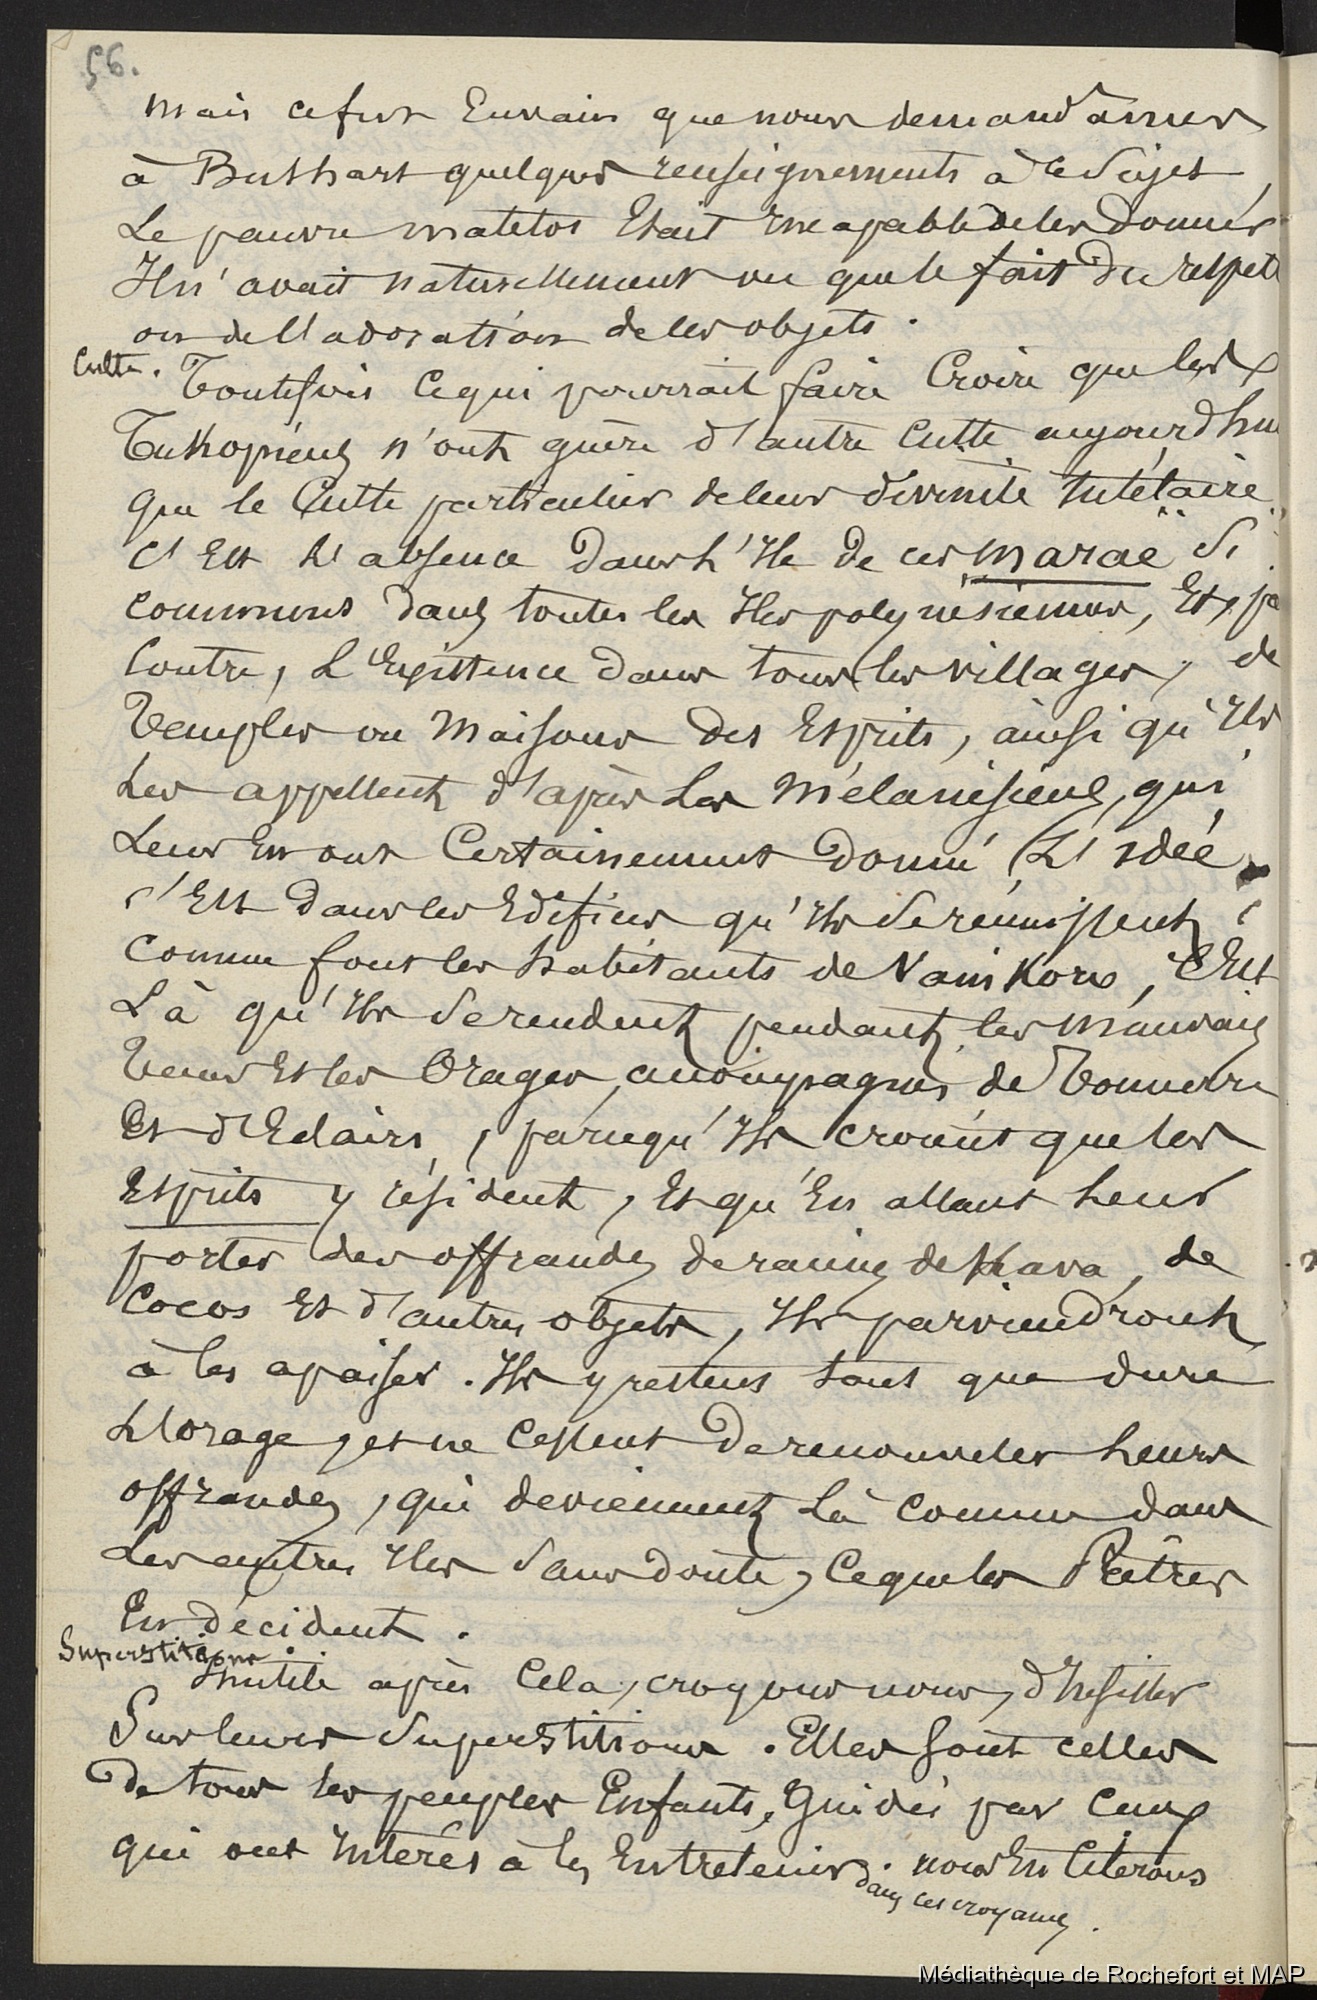 56.
Mais ce fut En vain que nous demandâmes
à Bushart quelques renseignements à ce Sujet,
Le pauvre matelot Etait Incapable de les Donner
Il n'avait naturellement vu que le fait Du respect
ou de l'adoration de les objets.
Culte.
Toutefois Ce qui pourrait faire Croire que les
Tukopiens n'ont guère d'autre Culte aujourd'hui
que le Culte particulier de leur divinité tutélaire
C'Est L'absence Dans L'Ile de ces Marae Si
communs dans toutes les Iles polynésiennes, Et, par
Contre, L'Existence dans tous les villages, de
Temples ou Maisons des Esprits, ainsi qu'Ils
Les appellent d'après Les Mélanésiens, qui
Leur En ont Certainement Donné L'Idée.
C'Est Dans les Edifices qu'Ils Se réunissent
Comme font les habitants de Vanikoro, C'Est
Là qu'Ils Se rendent pendant les Mauvais
Temps Et les Orages, accompagnés de Tonnerre
Et d'Eclairs, parce qu'Ils croient que les
Esprits y résident, Et qu'En allant Leur
porter des offrandes de racines de Kava, de
Cocos Et d'autres objets, Ils parviendront
à les apaiser. Ils y restent tant que dure
L'orage, et ne Cessent De renouveler Leurs
offrandes, qui deviennent Là Comme dans
Les autres Iles Sans doute, Ce que les Prêtres
En décident.
Superstitions.
Inutile après Cela, croyons nous, d'Insister
Sur leurs Superstitions. Elles Sont celles
De tous les peuples Enfants, Guidés par Ceux
qui ont Intérêt à les Entretenir dans ces croyances. nous En Citerons
Médiathèque de Rochefort et MAP